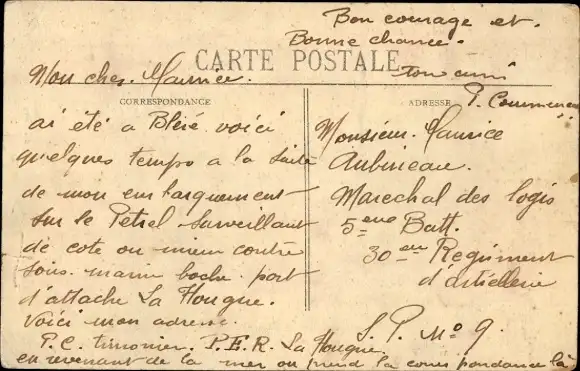 Bon courage et
Bonne chance.
CARTE POSTALE
ton ami
Mon cher Maurice.
P. Commenceau
CORRESPONDANCE
ai été a Bléré voici
quelques temps a la suite
de mon embarquement
sur le Pétrel surveillant
de cote ou mieux contre
sous-marin boche port
d'attache La Hougue.
Voici mon adresse
P.C. timonier. P.E.R. La Hougue
en revenant de la mer on prend la correspondance là
ADRESSE
Monsieur Maurice
Aubineau.
Marechal des logis
5eme Batt.
30 eme Regiment
d'artillerie
S. P. No 9.